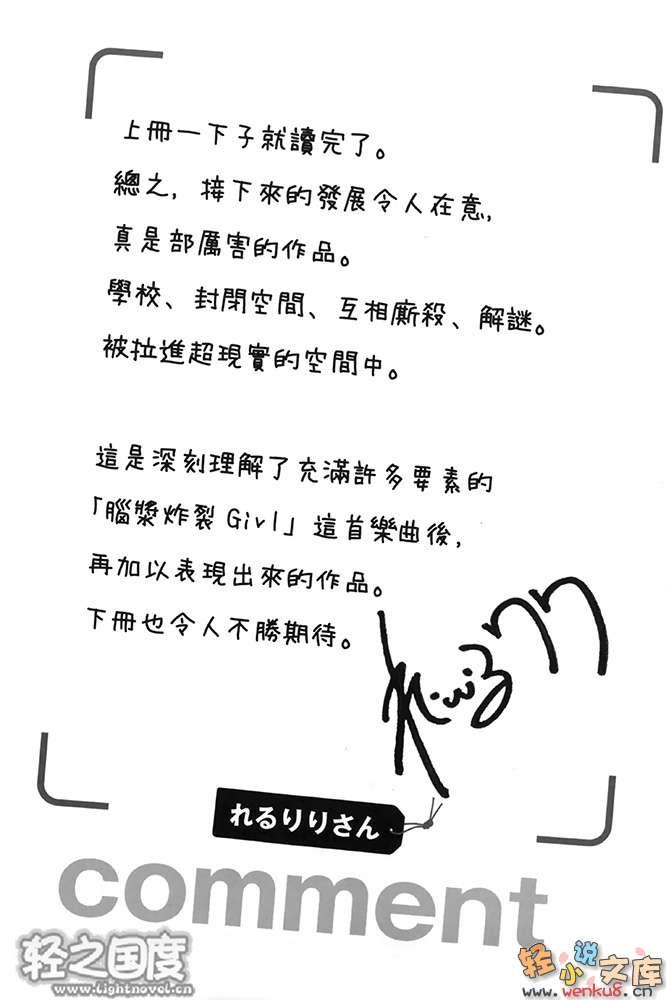 上冊一下子就讀完了。
總之，接下來的發展令人在意，
真是部厲害的作品。
學校、封閉空間、互相廝殺、解謎。
被拉進超現實的空間中。
這是深刻理解了充滿許多要素的
「腦漿炸裂 Girl」這首樂曲後，
再加以表現出來的作品。
下冊也令人不勝期待。
れるりりさん
comment
轻之国度
www.lightnovel.cn
轻小说文库
www.wenku8.cn